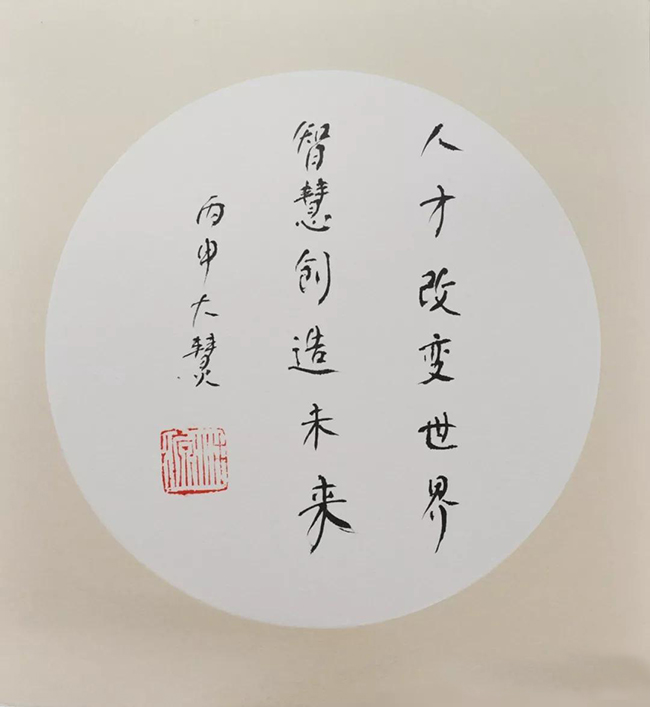 人才改变世界
智慧创造未来
丙申大熭